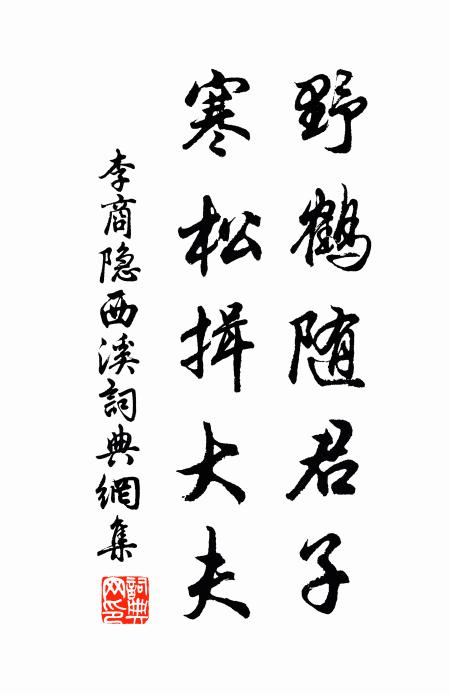 野鹤随君子
寒松揖大夫
李商隐西溪詞典網集
詞典网印